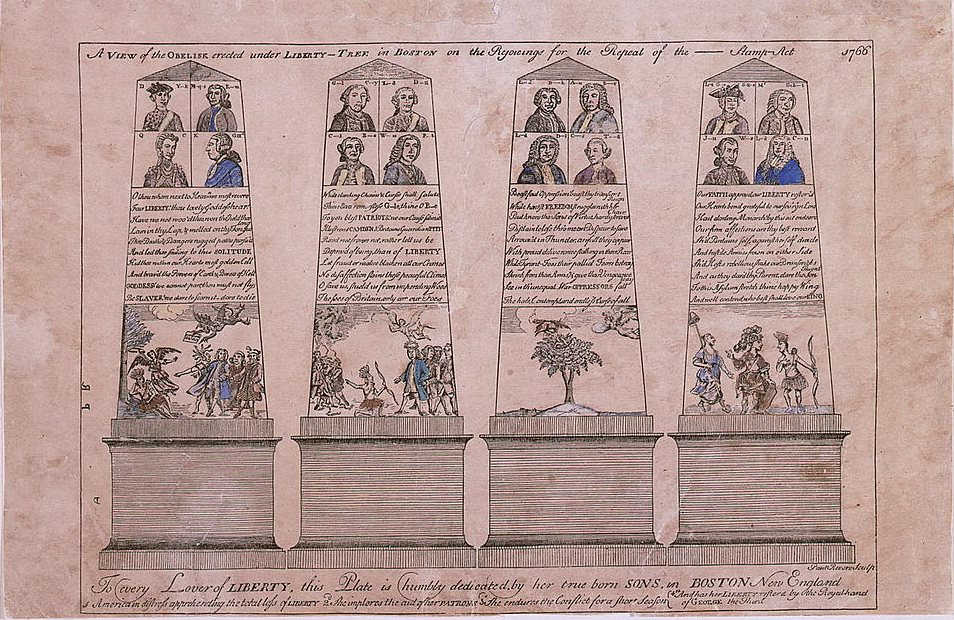 A VIEW of the OBELISK erected under LIBERTY-TREE in BOSTON on the Rejoicings for the Repeal of the — Stamp-Act 1766
O thou whom next to Heav'n we most revere
Fair LIBERTY! thou lovely Goddess hear!
Have we not woo'd thee won thee held thee long
Lain in thy Lap & melted on thy Tongue
Thro Deaths & Dangers rugged paths pursu'd
And led thee smiling to this SOLITUDE
Hid thee within our Hearts most golden Cell
And brav'd the Powers of Earth & Powers of Hell
GODDESS! we cannot part thou must not fly
Be SLAVES! we dare to scorn it dare to die
While clanking Chains & Curses shall salute
To you blest PATRIOTS we our Cause submit
Illustrious CAMDEN Britain's Guardian PITT
Recede not frown not rather let us be
Depriv'd of being than of LIBERTY
Let fraud or malice blacken all our Crimes
No disaffection stains these peaceful Climes
O save us shield us from impending Woes
The foes of Britain only are our Foes
Boast foul Oppression boast thy transient Reign
While honest FREEDOM struggles with her Chain
But know the Sons of Virtue hardy brave
Disdain to lose thro mean Despair to save
Arrouz'd in Thunder awfull they appear
With proud deliverance stalking in their Rear
While Tyrant Foes their pallid Fears betray
Shrink from their Arms & give their Vengeance way
See in th unequal War OPPRESSORS fall
The hate, contempt and endless Curse of all
Our FAITH approv'd our LIBERTY restor'd
Our Hearts bend grateful to our sov'reign Lord
Hail darling Monarch by this act endear'd
Our firm affections are thy best reward
Sh'd Britains self against her self divide
And hostile Armies frown on either Side
Sh'd Hosts rebellious shake our Brunswick's Throne
And as they dar'd thy Parent dare the Son
To this Asylum stretch thine happy Wing
And we'll contend who best shall love our KING
Paul Revere Sculp
To every Lover of LIBERTY, this Plate is humbly dedicated, by her true born SONS, in BOSTON New England
America in distress apprehending the total loss of LIBERTY 2.d She implores the aid of her PATRONS 3.d She endures the Conflict for a short Season 4. And has her LIBERTY restor'd by the Royal hand
of GEORGE the Third